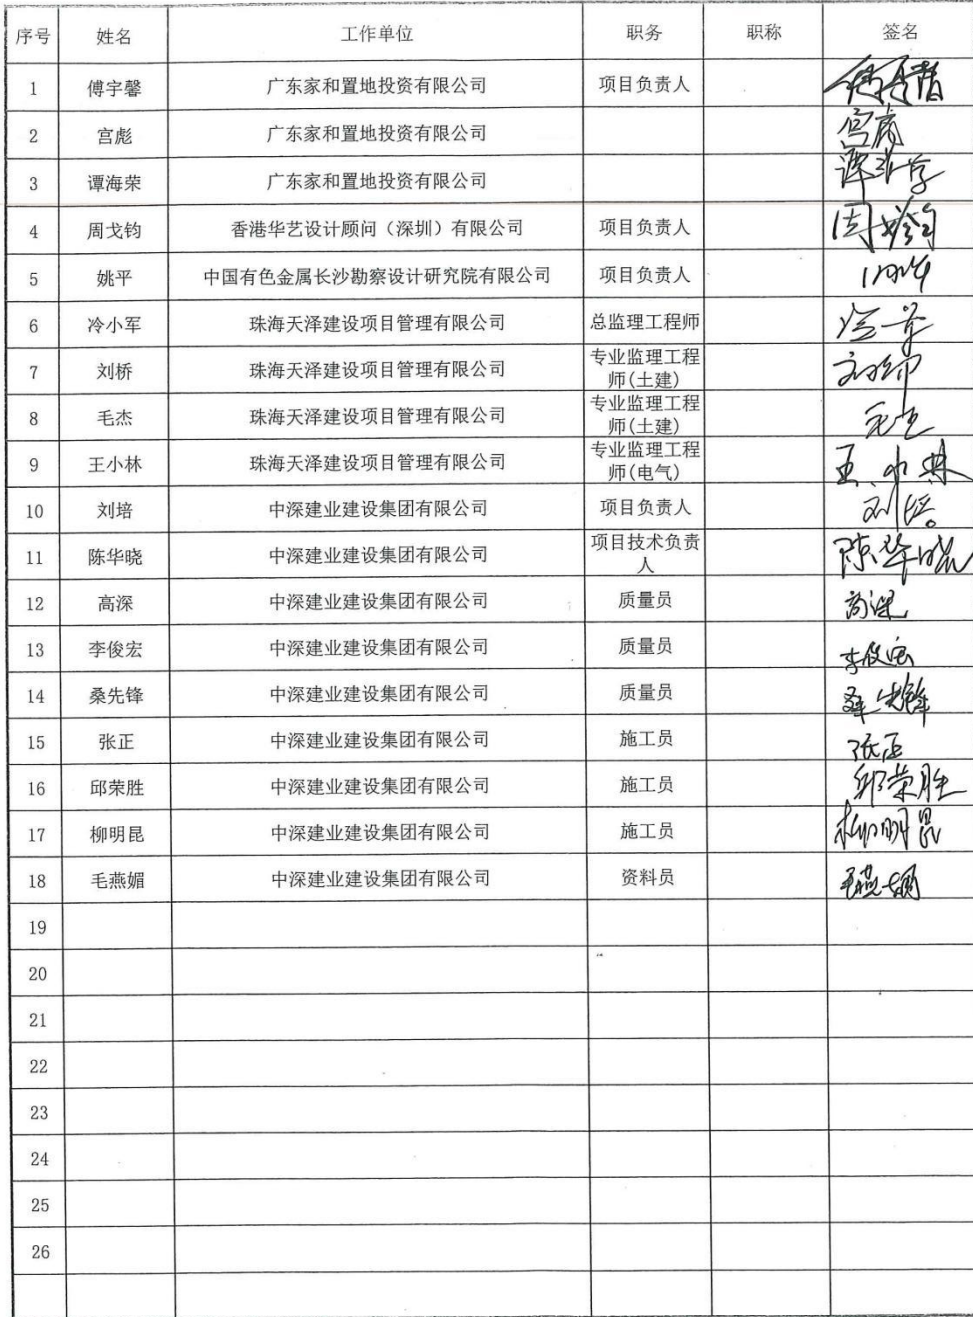 序号 姓名 工作单位 职务 职称 签名
1 傅宇馨 广东家和置地投资有限公司 项目负责人
2 宫彪 广东家和置地投资有限公司
3 谭海荣 广东家和置地投资有限公司
4 周戈钧 香港华艺设计顾问（深圳）有限公司 项目负责人
5 姚平 中国有色金属长沙勘察设计研究院有限公司 项目负责人
6 冷小军 珠海天泽建设项目管理有限公司 总监理工程师
7 刘桥 珠海天泽建设项目管理有限公司 专业监理工程
师(土建)
8 毛杰 珠海天泽建设项目管理有限公司 专业监理工程
师(土建)
9 王小林 珠海天泽建设项目管理有限公司 专业监理工程
师(电气) 王小林
10 刘培 中深建业建设集团有限公司 项目负责人 刘培
11 陈华晓 中深建业建设集团有限公司 项目技术负责
人 陈华晓
12 高深 中深建业建设集团有限公司 质量员 高深
13 李俊宏 中深建业建设集团有限公司 质量员 李俊宏
14 桑先锋 中深建业建设集团有限公司 质量员 桑先锋
15 张正 中深建业建设集团有限公司 施工员 张正
16 邱荣胜 中深建业建设集团有限公司 施工员 邱荣胜
17 柳明昆 中深建业建设集团有限公司 施工员 柳明昆
18 毛燕媚 中深建业建设集团有限公司 资料员 毛燕媚
19
20
21
22
23
24
25
26